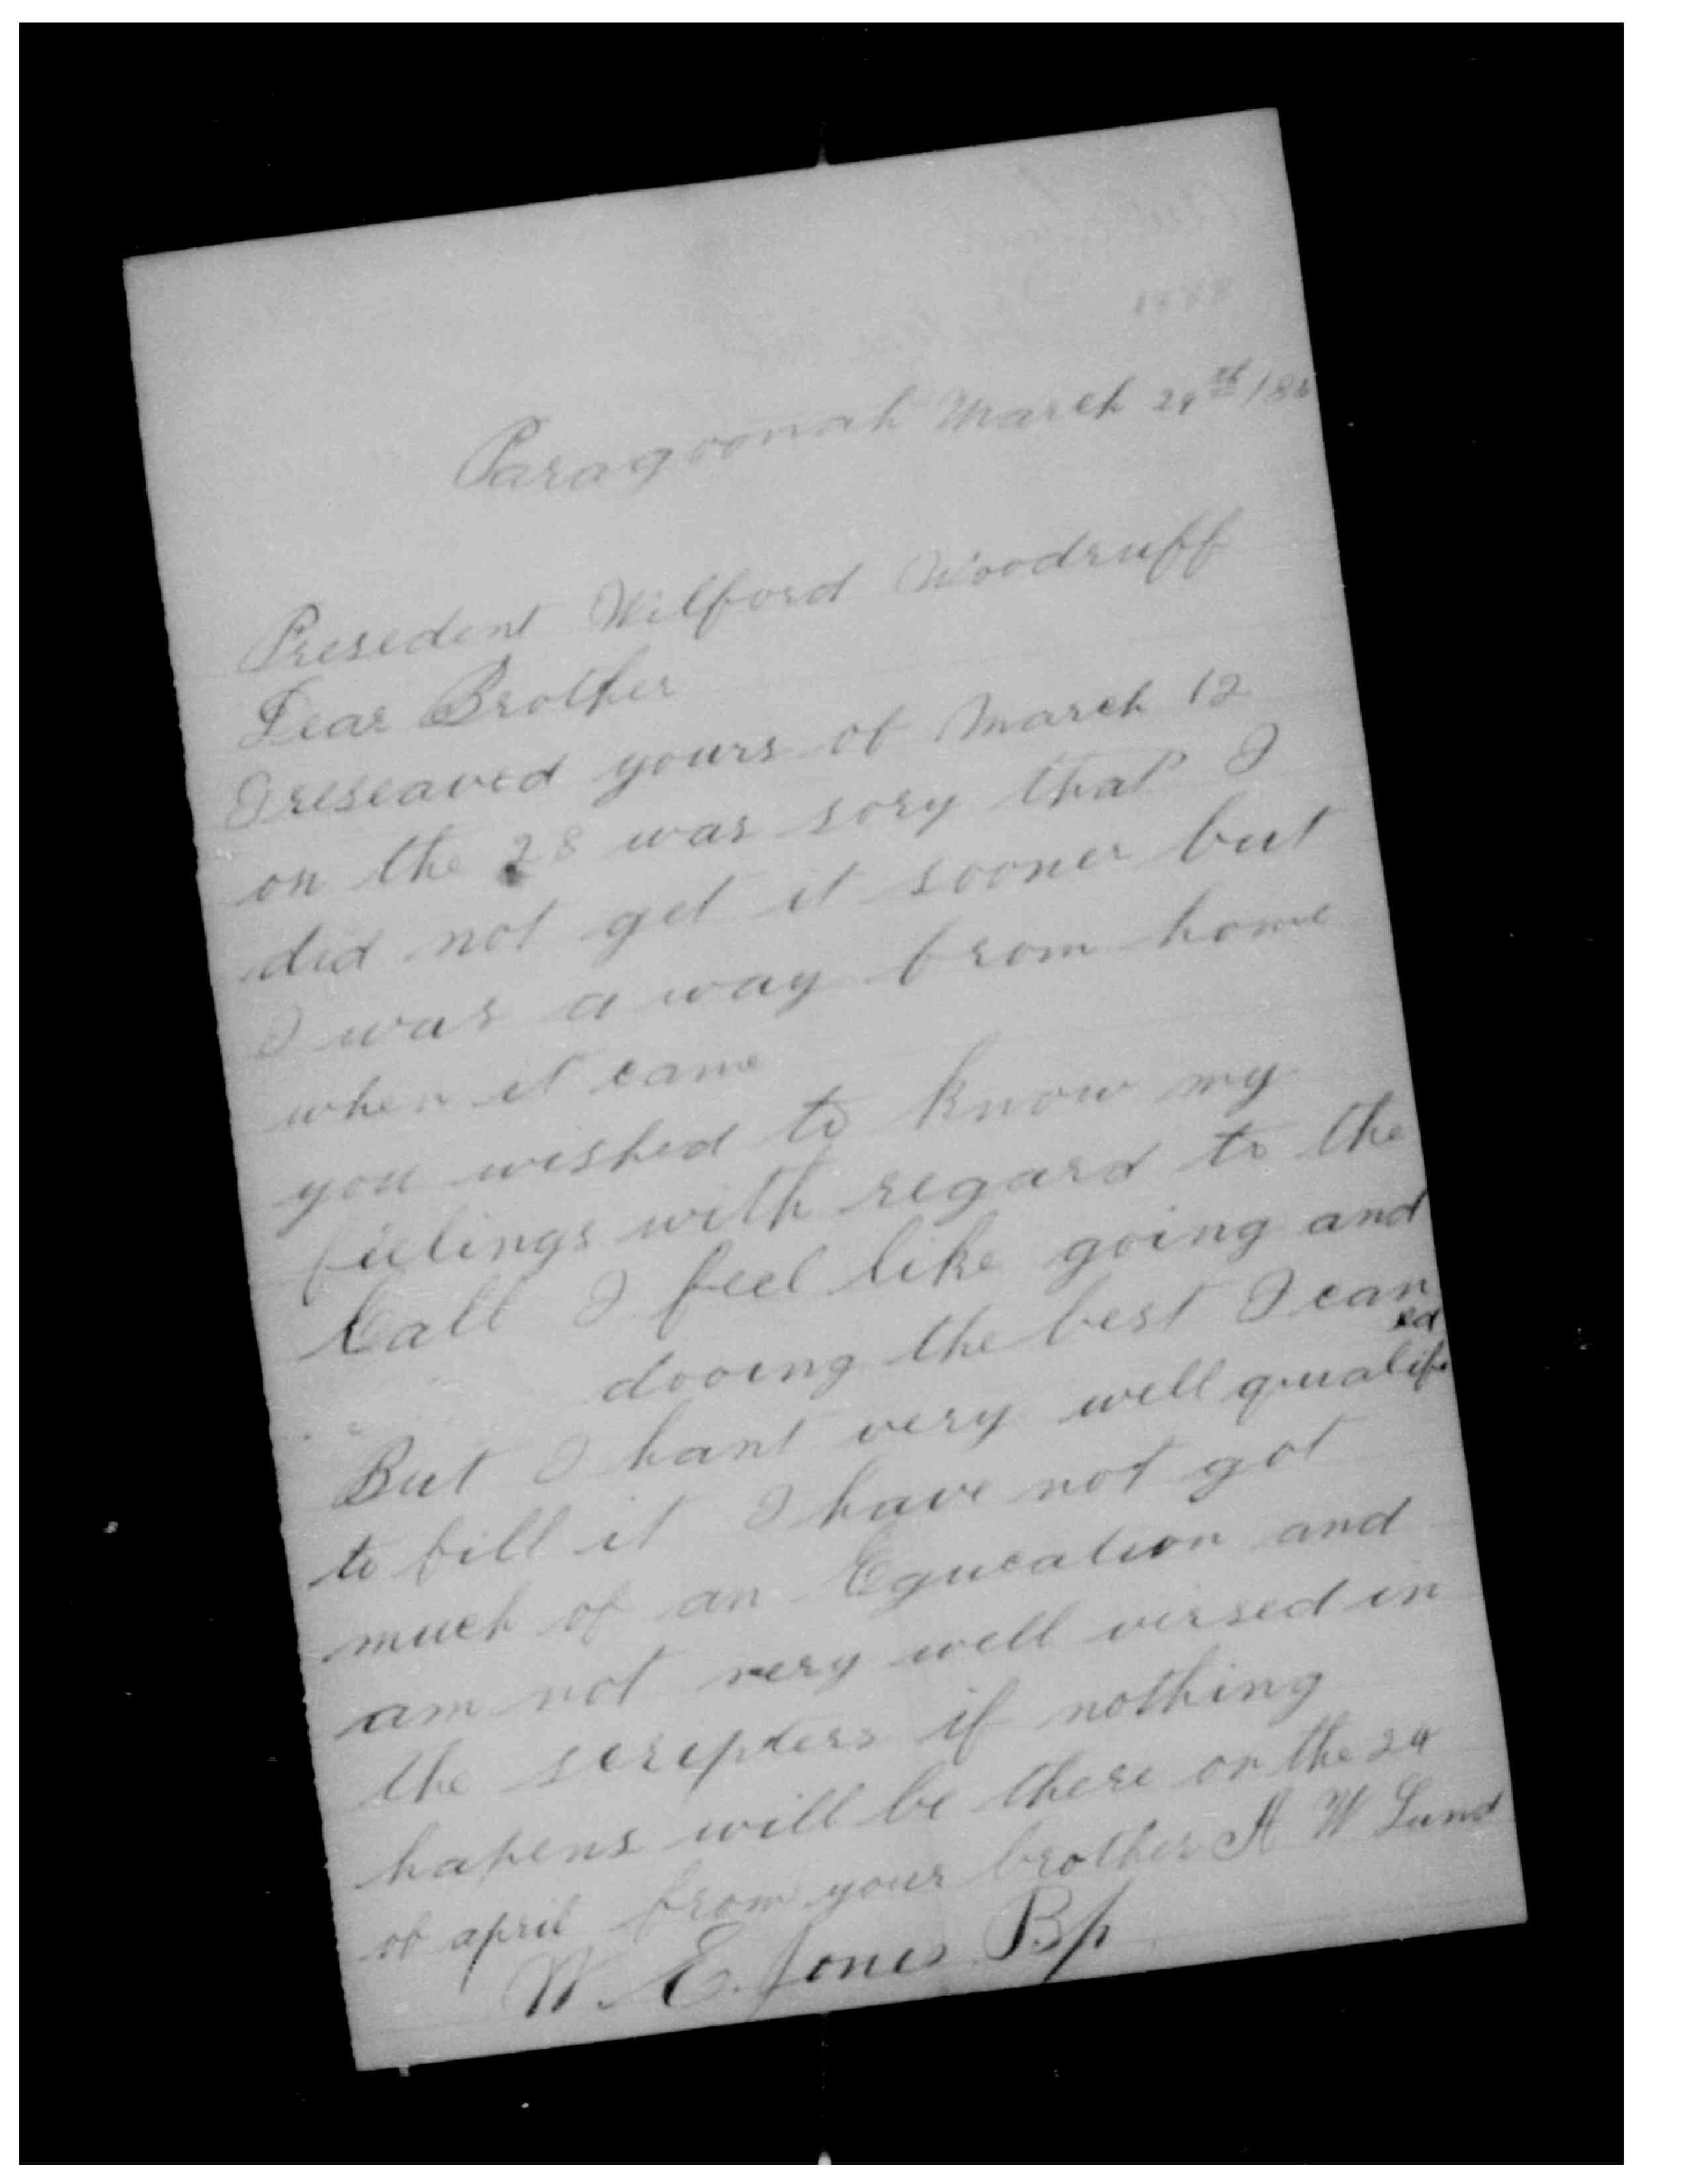 Paragoonah March 29th 188
Presedent Wilford Woodruff
Dear Brother
I reseaved yours of March 12
on the 28 was sory that I
did not get it sooner but
I was a way from home
when it came
you wished to know my
feelings with regard to the
Call I feel like going and
dooing the best I can
But I hant very well qualified
to fill it I have not got
much of an Egucation and
am not very well versed in
the scripters if nothing
hapens will be there on the 24
of april from your brother A W Lund
W. E. Jones Bp